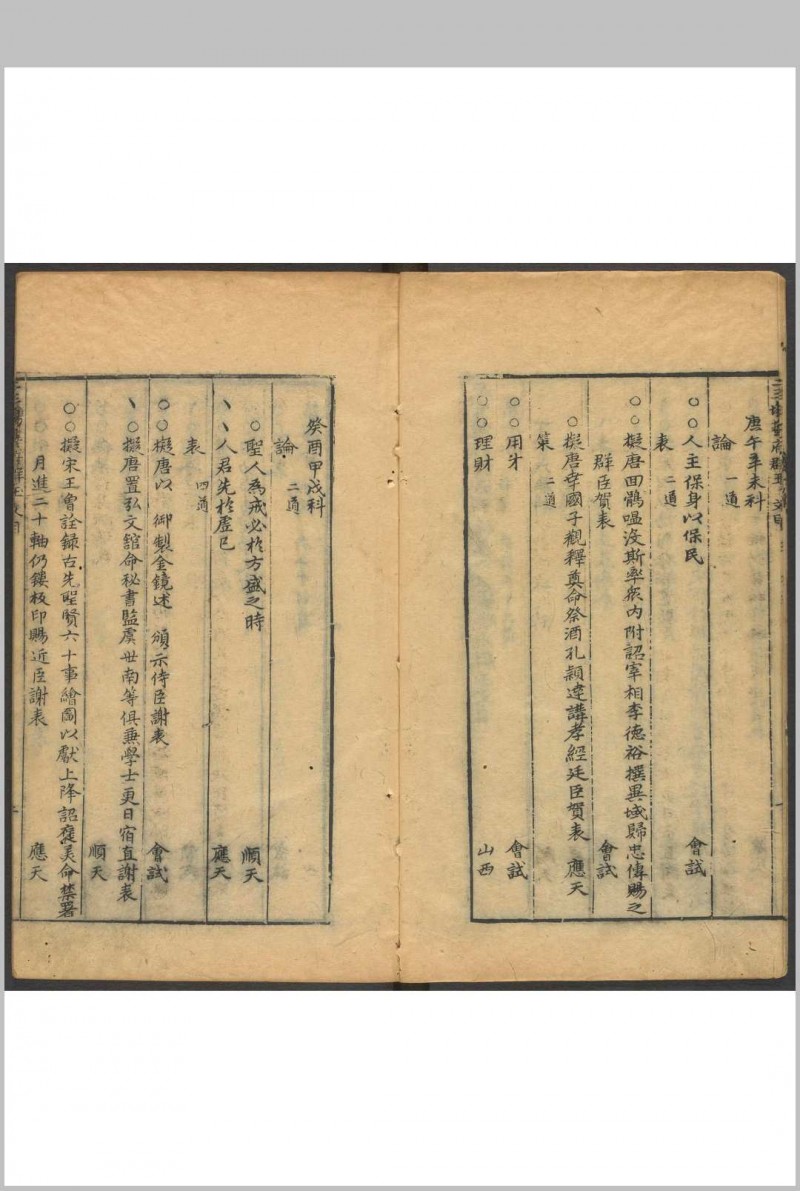 庚午辛未科
論 一道
○○人主保身以保民 會試
表 二道
○○擬唐回鶻嗢沒斯率衆內附詔宰相李德裕撰異域歸忠傳賜之
群臣賀表 會試
○擬唐幸國子觀釋奠命祭酒孔穎達講孝經廷臣賀表 應天
策 二道
○○用才 會試
○○理財 山西
癸酉甲戌科
論 二道
○聖人為戒必於方盛之時 順天
丶丶人君先於虛己 應天
表 四道
○○擬唐以 御製金鏡述 頒示侍臣謝表 會試
丶○擬唐置弘文館命秘書監虞世南等俱兼學士更日宿直謝表
順天
○○擬宋王曾詮錄古先聖賢六十事繪圖以獻上降詔褒美命禁署
月進二十軸仍鏤板印賜近臣謝表 應天